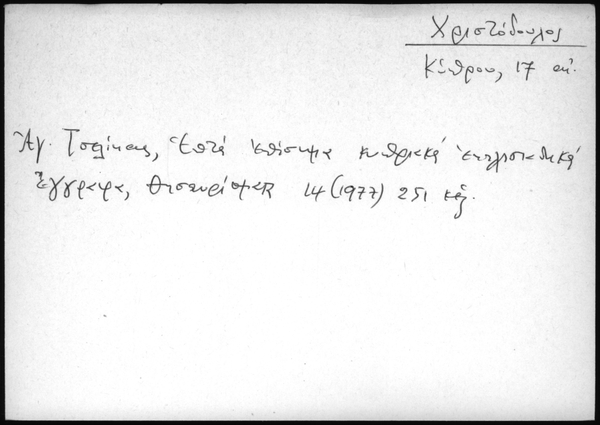 Χριστόδουλος
Κύπρου, 17 αἰ.
Ἀγ. Τσελίκας, Ἑπτὰ ἐπίσημα κυπριακὰ ἐκκλησιαστικὰ
ἔγγραφα, Θησαυρίσματα 14 (1977) 251 κἑξ.